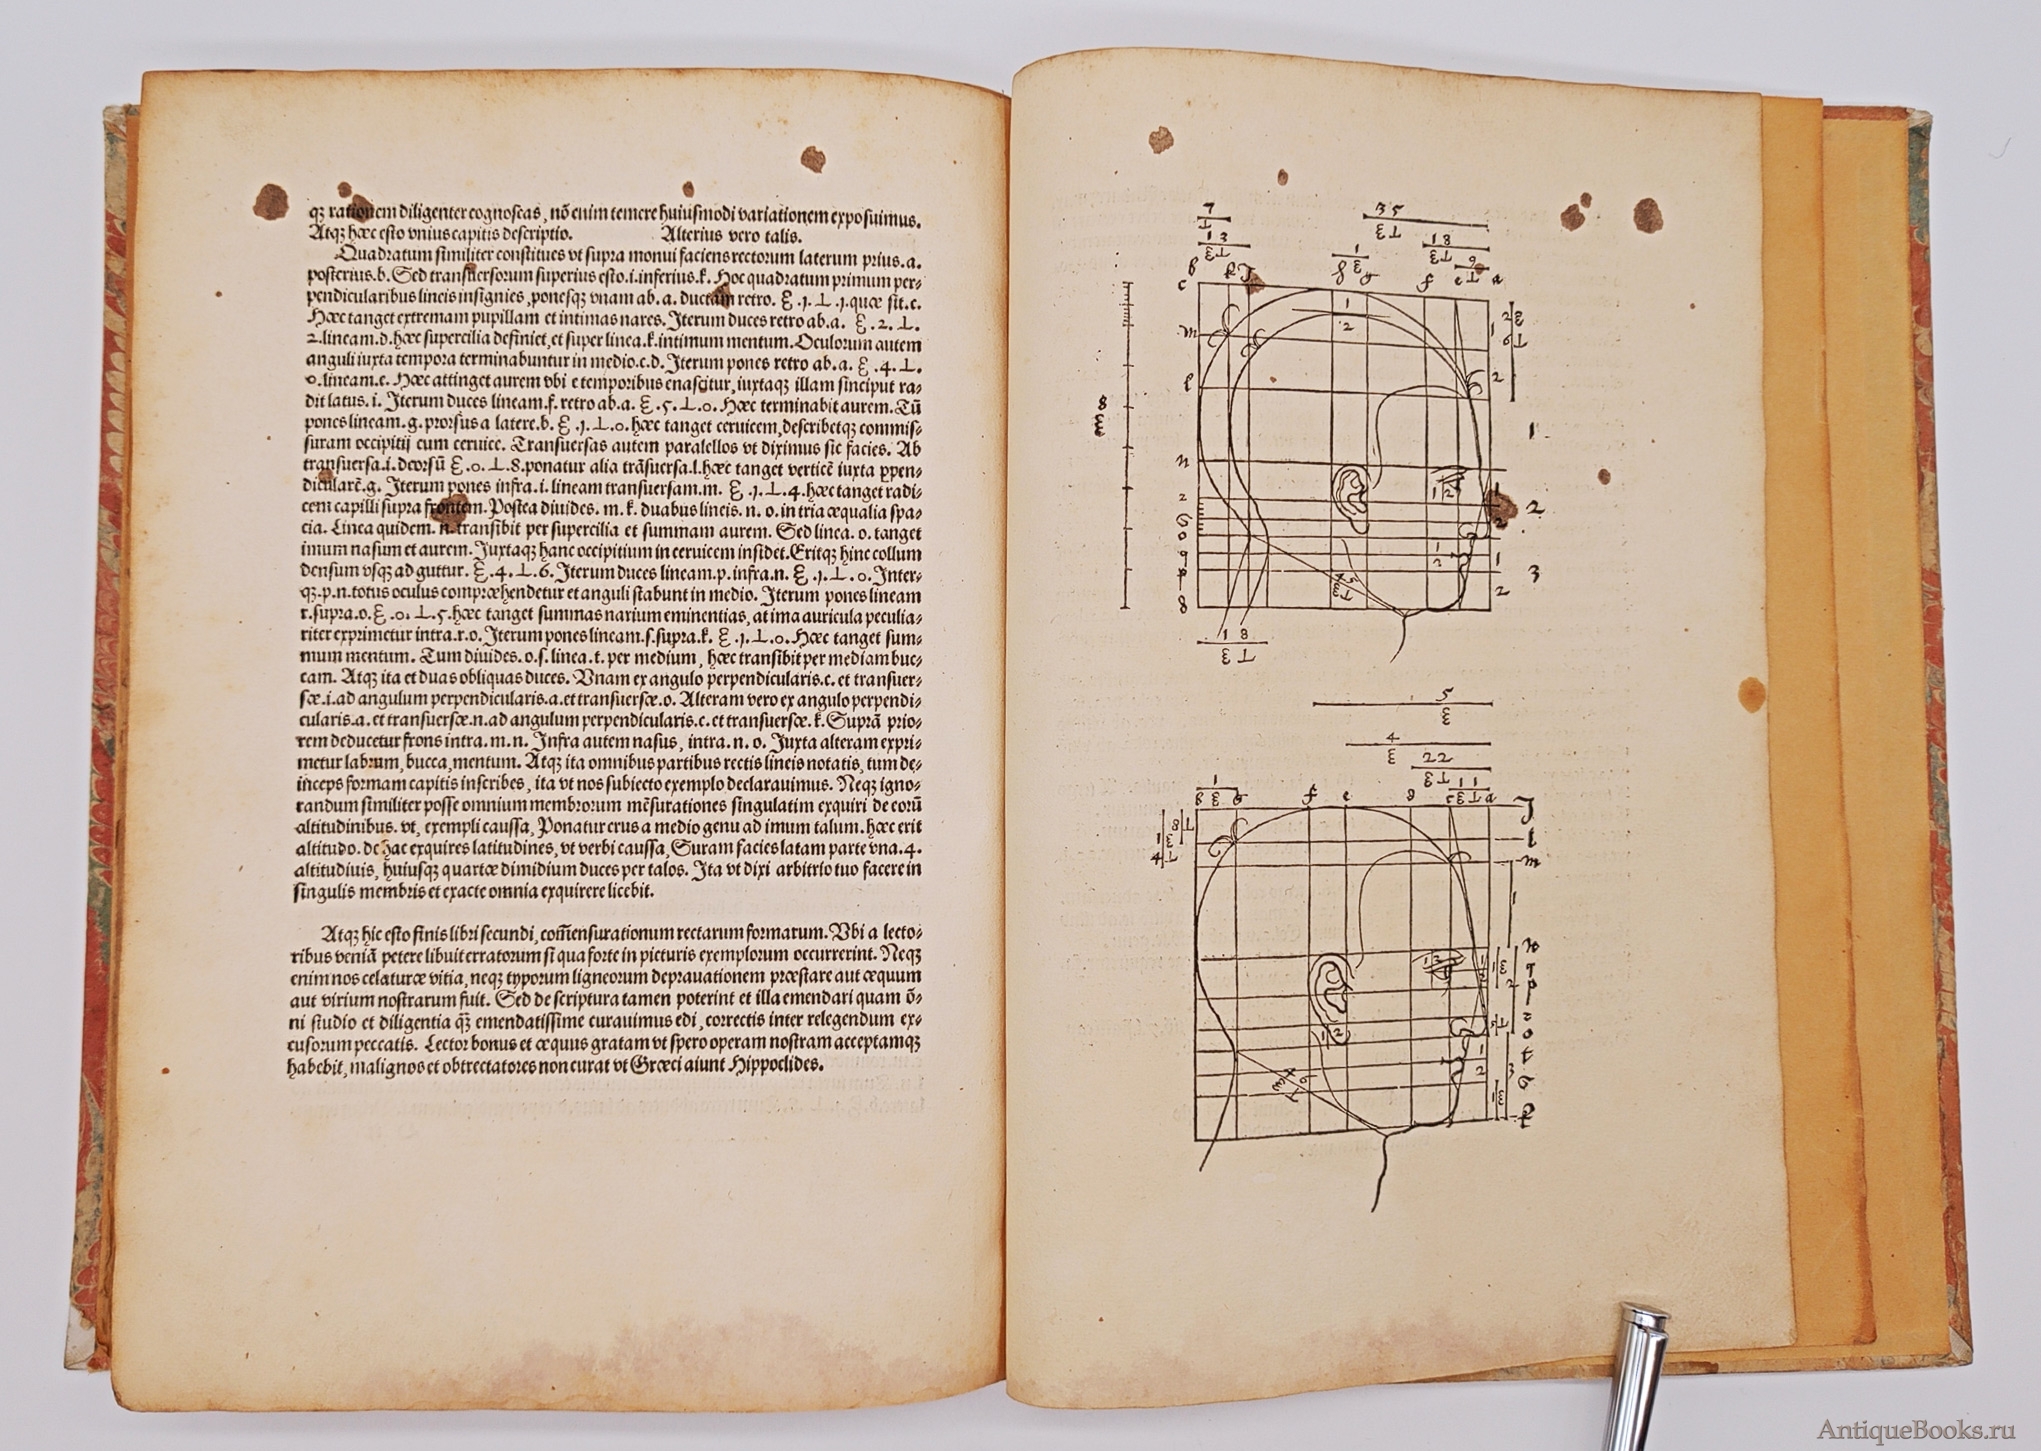 qꝫ rationem diligenter cognoscas, nō enim temere huiusmodi variationem exposuimus.
Atqꝫ hæc esto vnius capitis descriptio. Alterius vero talis.
Quadratum similiter constitues vt supra monui faciens rectorum laterum prius .a.
posterius .b. Sed transuersorum superius esto .i. inferius .k. Hoc quadratum primum per⸗
pendicularibus lineis insignies, ponesqꝫ vnam ab .a. ductam retro. Ƹ .1. ⊥ .1. quæ sit .c.
Hæc tanget extremam pupillam et intimas nares. Iterum duces retro ab .a. Ƹ .2. ⊥.
2. lineam .d. hæc supercilia definiet, et super linea .k. intimum mentum. Oculorum autem
anguli iuxta tempora terminabuntur in medio .c.d. Iterum pones retro ab .a. Ƹ .4. ⊥.
o. lineam .e. Hæc attinget aurem vbi e temporibus enascitur, iuxtaqꝫ illam sinciput ra⸗
dit latus .i. Iterum duces lineam .f. retro ab .a. Ƹ .5. ⊥ .o. Hæc terminabit aurem. Tū
pones lineam .g. prorsus a latere .b. Ƹ .1. ⊥ .o. hæc tanget ceruicem, describetqꝫ commis⸗
suram occipitij cum ceruice. Transuersas autem paralellos vt diximus sic facies. Ab
transuersa .i. deorsū Ƹ .o. ⊥ .8. ponatur alia trāsuersa .l. hæc tanget verticē iuxta ꝑpen⸗
dicularē .g. Iterum pones infra .i. lineam transuersam .m. Ƹ .1. ⊥ .4. hæc tanget radi⸗
cem capilli supra frontem. Postea diuides .m. k. duabus lineis .n. o. in tria æqualia spa⸗
cia. Linea quidem .n. transibit per supercilia et summam aurem. Sed linea .o. tanget
imum nasum et aurem. Iuxtaqꝫ hanc occipitium in ceruicem insidet. Eritqꝫ hinc collum
densum vsqꝫ ad guttur. Ƹ .4. ⊥ .6. Iterum duces lineam .p. infra .n. Ƹ .1. ⊥ .o. Inter⸗
qꝫ .p.n. totus oculus compræhendetur et anguli stabunt in medio. Iterum pones lineam
r. supra .o. Ƹ .o. ⊥ .5. hæc tanget summas narium eminentias, at ima auricula peculia⸗
riter exprimetur intra .r.o. Iterum pones lineam .s. supra .k. Ƹ .1. ⊥ .o. Hæc tanget sum⸗
mum mentum. Tum diuides .o.s. linea .t. per medium, hæc transibit per mediam buc⸗
cam. Atqꝫ ita et duas obliquas duces. Vnam ex angulo perpendicularis .c. et transuer⸗
sæ .i. ad angulum perpendicularis .a. et transuersæ .o. Alteram vero ex angulo perpendi⸗
cularis .a. et transuersæ .n. ad angulum perpendicularis .c. et transuersæ .k. Suprā prio⸗
rem deducetur frons intra .m. n. Infra autem nasus, intra .n. o. Iuxta alteram expri⸗
metur labrum, bucca, mentum. Atqꝫ ita omnibus partibus rectis lineis notatis, tum de⸗
inceps formam capitis inscribes, ita vt nos subiecto exemplo declarauimus. Neqꝫ igno⸗
randum similiter posse omnium membrorum mēsurationes singulatim exquiri de eorū
altitudinibus. vt, exempli caussa, Ponatur crus a medio genu ad imum talum. hæc erit
altitudo. de hac exquires latitudines, vt verbi caussa, Suram facies latam parte vna .4.
altitudiuis, huiusqꝫ quartæ dimidium duces per talos. Ita vt dixi arbitrio tuo facere in
singulis membris et exacte omnia exquirere licebit.
Atqꝫ hic esto finis libri secundi, com̄ensurationum rectarum formarum. Vbi a lecto⸗
ribus veniā petere libuit erratorum si qua forte in picturis exemplorum occurrerint. Neqꝫ
enim nos celaturæ vitia, neqꝫ typorum ligneorum deprauationem præstare aut æquum
aut virium nostrarum fuit. Sed de scriptura tamen poterint et illa emendari quam ō⸗
ni studio et diligentia qꝫ̄ emendatissime curauimus edi, correctis inter relegendum ex⸗
cusorum peccatis. Lector bonus et æquus gratam vt spero operam nostram acceptamqꝫ
habebit, malignos et obtrectatores non curat vt Græci aiunt Hippoclides.
7
35
13
18
1
9
c
m
l
n
o
q
p
8
8
1
2
3
18
5
4
22
1
11
l
m
p
o
t
AntiqueBooks.ru